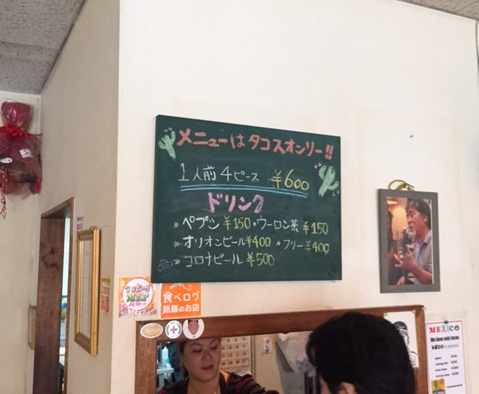 メニューはタコスオンリー!!
1人前4ピース ¥600
ドリンク
ペプシ ¥150・ウーロン茶 ¥150
オリオンビール¥400 ・フリー¥400
コロナビール ¥500
食べログ
話題のお店
MEXICO